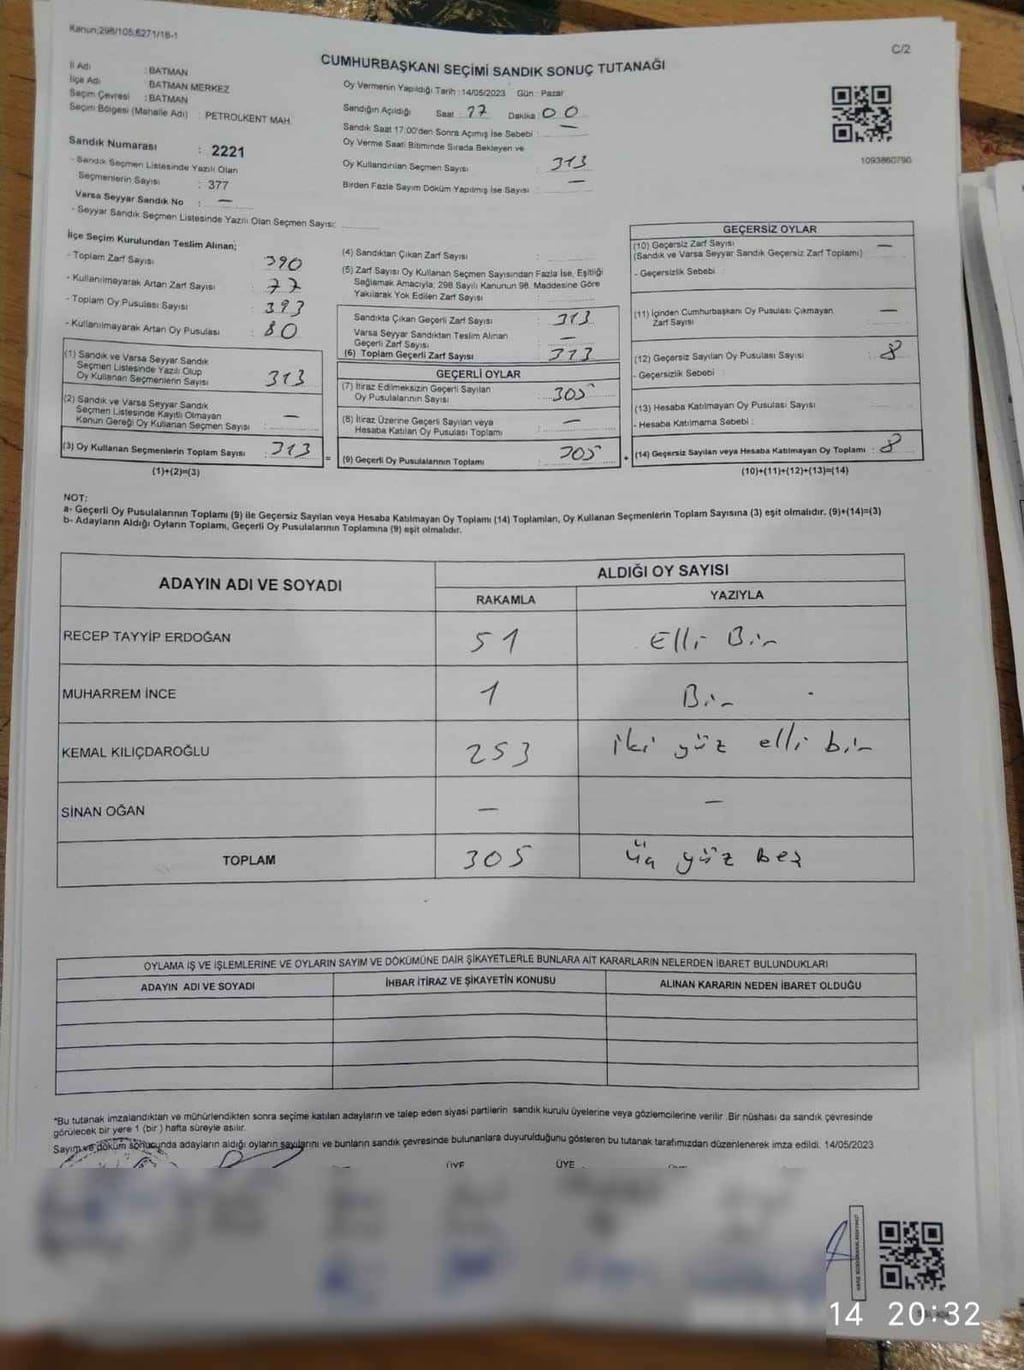 Kanun;298/105;6271/18-1
C/2
CUMHURBAŞKANI SEÇİMİ SANDIK SONUÇ TUTANAĞI
İl Adı : BATMAN
İlçe Adı : BATMAN MERKEZ
Seçim Çevresi : BATMAN
Seçim Bölgesi (Mahalle Adı) : PETROLKENT MAH.
Oy Vermenin Yapıldığı Tarih : 14/05/2023 Gün : Pazar
Sandığın Açıldığı Saat 17 Dakika 00
Sandık Saat 17:00'den Sonra Açımış İse Sebebi : —
Oy Verme Saati Bitiminde Sırada Bekleyen ve
Oy Kullandırılan Seçmen Sayısı : 313
Birden Fazla Sayım Döküm Yapılmış İse Sayısı : —
1093860790
Sandık Numarası : 2221
- Sandık Seçmen Listesinde Yazılı Olan
Seçmenlerin Sayısı : 377
Varsa Seyyar Sandık No : —
- Seyyar Sandık Seçmen Listesinde Yazılı Olan Seçmen Sayısı:
İlçe Seçim Kurulundan Teslim Alınan;
- Toplam Zarf Sayısı : 390
- Kullanılmayarak Artan Zarf Sayısı : 77
- Toplam Oy Pusulası Sayısı : 393
- Kullanılmayarak Artan Oy Pusulası : 80
(1) Sandık ve Varsa Seyyar Sandık
Seçmen Listesinde Yazılı Olup
Oy Kullanan Seçmenlerin Sayısı : 313
(2) Sandık ve Varsa Seyyar Sandık
Seçmen Listesinde Kayıtlı Olmayan
Kanun Gereği Oy Kullanan Seçmen Sayısı : —
(3) Oy Kullanan Seçmenlerin Toplam Sayısı : 313
(1)+(2)=(3)
(4) Sandıktan Çıkan Zarf Sayısı :
(5) Zarf Sayısı Oy Kullanan Seçmen Sayısından Fazla İse, Eşitliği
Sağlamak Amacıyla; 298 Sayılı Kanunun 98. Maddesine Göre
Yakılarak Yok Edilen Zarf Sayısı :
Sandıkta Çıkan Geçerli Zarf Sayısı : 313
Varsa Seyyar Sandıktan Teslim Alınan
Geçerli Zarf Sayısı : —
(6) Toplam Geçerli Zarf Sayısı : 313
GEÇERLİ OYLAR
(7) İtiraz Edilmeksizin Geçerli Sayılan
Oy Pusulalarının Sayısı : 305
(8) İtiraz Üzerine Geçerli Sayılan veya
Hesaba Katılan Oy Pusulası Toplamı : —
(9) Geçerli Oy Pusulalarının Toplamı : 305
GEÇERSİZ OYLAR
(10) Geçersiz Zarf Sayısı : —
(Sandık ve Varsa Seyyar Sandık Geçersiz Zarf Toplamı)
- Geçersizlik Sebebi :
(11) İçinden Cumhurbaşkanı Oy Pusulası Çıkmayan
Zarf Sayısı : —
(12) Geçersiz Sayılan Oy Pusulası Sayısı : 8
- Geçersizlik Sebebi :
(13) Hesaba Katılmayan Oy Pusulası Sayısı :
- Hesaba Katılmama Sebebi :
(14) Geçersiz Sayılan veya Hesaba Katılmayan Oy Toplamı : 8
(10)+(11)+(12)+(13)=(14)
NOT:
a- Geçerli Oy Pusulalarının Toplamı (9) ile Geçersiz Sayılan veya Hesaba Katılmayan Oy Toplamı (14) Toplamları, Oy Kullanan Seçmenlerin Toplam Sayısına (3) eşit olmalıdır. (9)+(14)=(3)
b- Adayların Aldığı Oyların Toplamı, Geçerli Oy Pusulalarının Toplamına (9) eşit olmalıdır.
ADAYIN ADI VE SOYADI ALDIĞI OY SAYISI
RAKAMLA YAZIYLA
RECEP TAYYİP ERDOĞAN 51 Elli Bir
MUHARREM İNCE 1 Bir
KEMAL KILIÇDAROĞLU 253 iki yüz elli bir
SİNAN OĞAN — —
TOPLAM 305 üç yüz beş
OYLAMA İŞ VE İŞLEMLERİNE VE OYLARIN SAYIM VE DÖKÜMÜNE DAİR ŞİKAYETLERLE BUNLARA AİT KARARLARIN NELERDEN İBARET BULUNDUKLARI
ADAYIN ADI VE SOYADI İHBAR İTİRAZ VE ŞİKAYETİN KONUSU ALINAN KARARIN NEDEN İBARET OLDUĞU
*Bu tutanak imzalandıktan ve mühürlendikten sonra seçime katılan adayların ve talep eden siyasi partilerin sandık kurulu üyelerine veya gözlemcilerine verilir .Bir nüshası da sandık çevresinde
görülecek bir yere 1 (bir ) hafta süreyle asılır.
Sayım ve döküm sonucunda adayların aldığı oyların sayılarını ve bunların sandık çevresinde bulunanlara duyurulduğunu gösteren bu tutanak tarafımızdan düzenlenerek imza edildi. 14/05/2023
ÜYE ÜYE
14 20:32